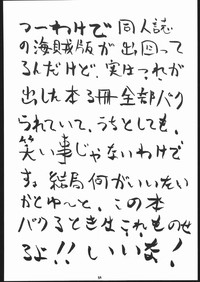 つーわけで同人誌
の海賊版が出回って
るんだけど、実はこれが
出した本 冊全部パク
られていて、うちとしても、
笑い事じゃないわけで
す。結局何がいいたい
かとゆーと、この本
パクるときはこれものせ
ろよ!!いいな!